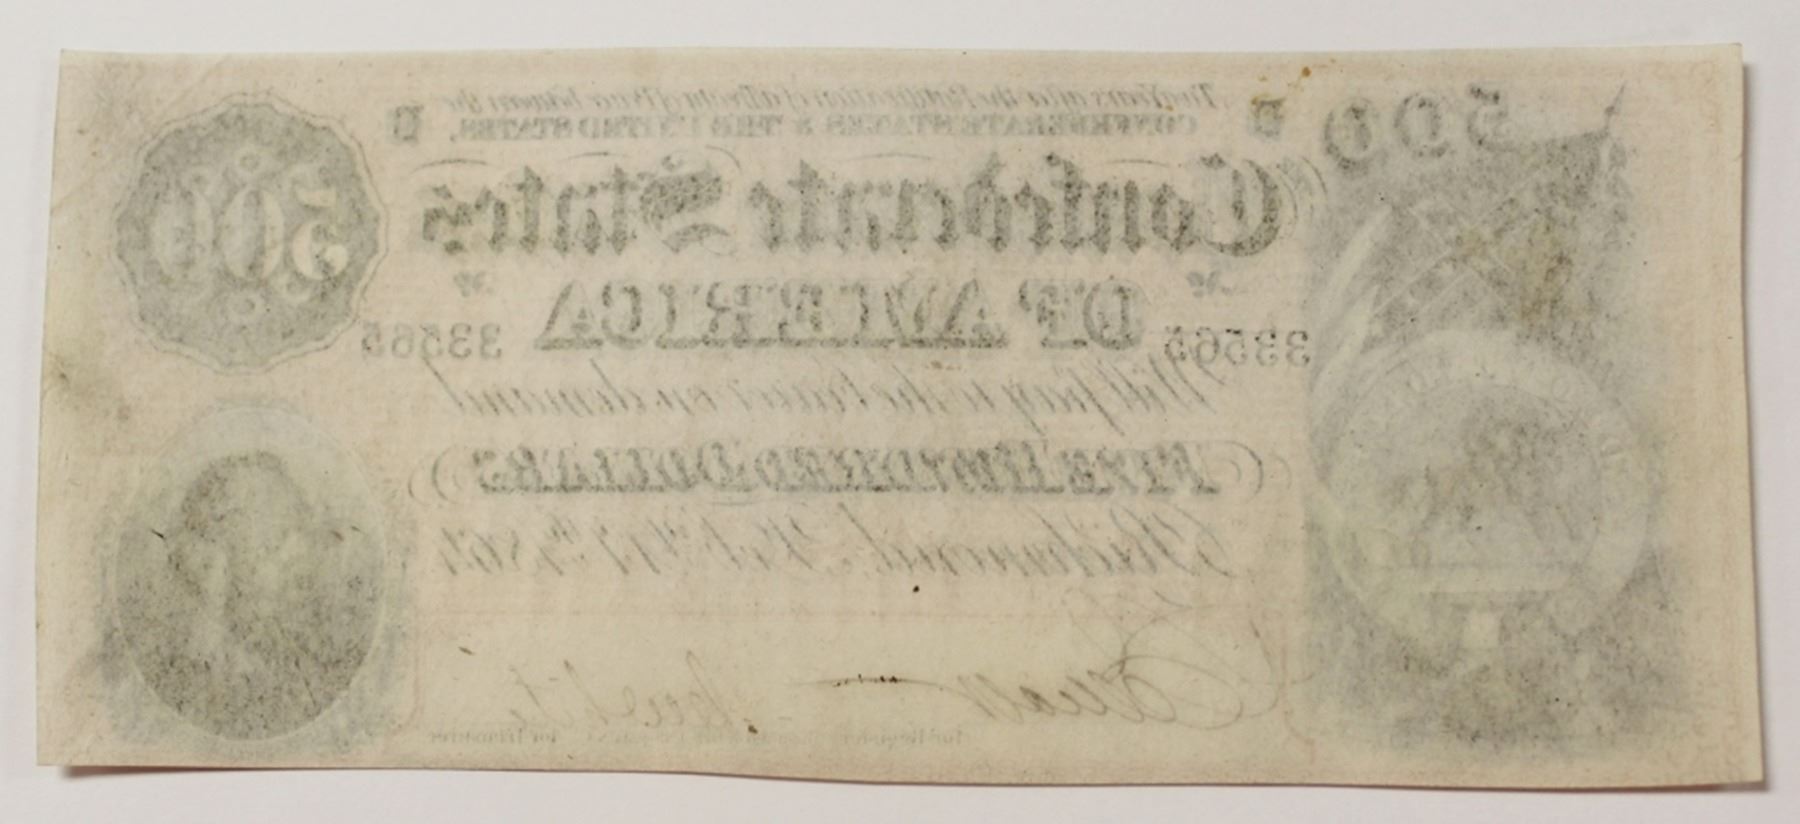 500
D
Two Years after the Ratification of a Treaty of Peace between the
D
CONFEDERATE STATES & THE UNITED STATES,
Confederate States
500
No
No
OF AMERICA
33565
33565
Will pay to the bearer on demand
FIVE HUNDRED DOLLARS
Richmond, Feb. 17th 1864
for Register
for Treasurer